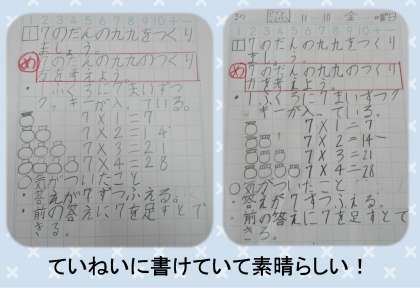 1 2 3 4 5 6 7 8 9 10
1 7のだんの九九をつくり
ましょう。
め 7のだんの九九のつくり
方を考えよう。
・1ふくろに7まいずつ
ク、キーが入っている。
7×1=7
7×2=14
7×3=21
7×4=28
○気がついたこと
・答えが7ずつふえる。
・前の答えに7を足すとで
きる。
11-10 金
1 7のだんの九九をつくり
ましょう。
め 7のだんの九九のつくり
方を考えよう。
・1ふくろに7まいずつク
ッキーが入っている。
7×1=7
7×2=14
7×3=21
7×4=28
○気がついたこと
・答えが7ずつふえる。
・前の答えに7を足すとで
きる。
ていねいに書けていて素晴らしい！